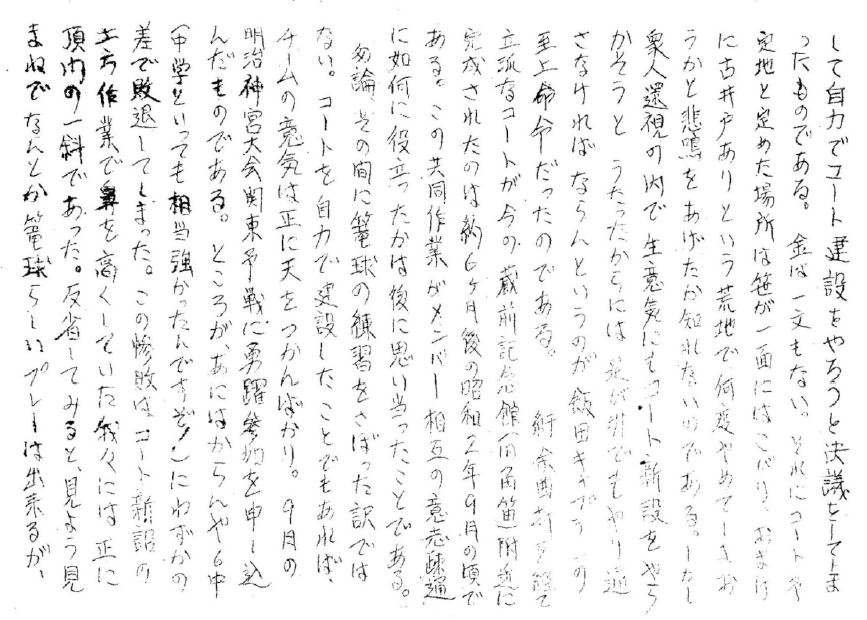 して自力でコート建設をやろうと決議をしてしま
ったものである。金は一文もない。それにコート予
定地と定めた場所は笹が一面にはこびり、おまけ
に古井戸ありという荒地で何度やめてしまお
うかと悲鳴をあげたか知れないのである。しかし
衆人還視の内で生意気にもコート新設をやら
かそうと うたったからには 是が非でもやり通
さなければならんというのが 飯田キャプテンの
至上命令だったのである。 紆余曲折を経て
立派なコートが今の蔵前記念館(向角笛)附近に
完成されたのは約6ヶ月後の昭和2年9月の頃で
ある。この共同作業がメンバー相互の意志疎通
に如何に役立ったかは後に思い当ったことである。
勿論、その間に篭球の練習をさぼった訳では
ない。コートを自力で建設したことでもあれば、
チームの意気は正に天をつかんばかり。9月の
明治神宮大会関東予戦に勇躍参加を申し込
んだものである。ところが、あにはからんや6中
(中学といっても相当強かったんですぞ!)にわずかの
差で敗退してしまった。この惨敗は、コート新設の
土方作業で鼻を高くしていた我々には正に
頂門の一斜であった。反省してみると、見よう見
まねでなんとか篭球らしいプレーは出来るが、